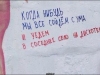 КОГДА НИБУДЬ
МЫ ВСЕ СОЙДЁМ С УМА
И УЕДЕМ
В СОСЕДНЕЕ СЕЛО НА ДИСКОТЕКУ